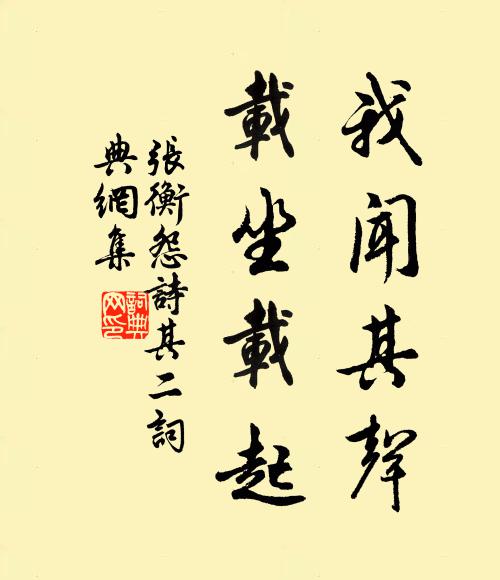 我聞其聲
載坐載起
張衡怨詩其二詞
典網集
詞典
網印